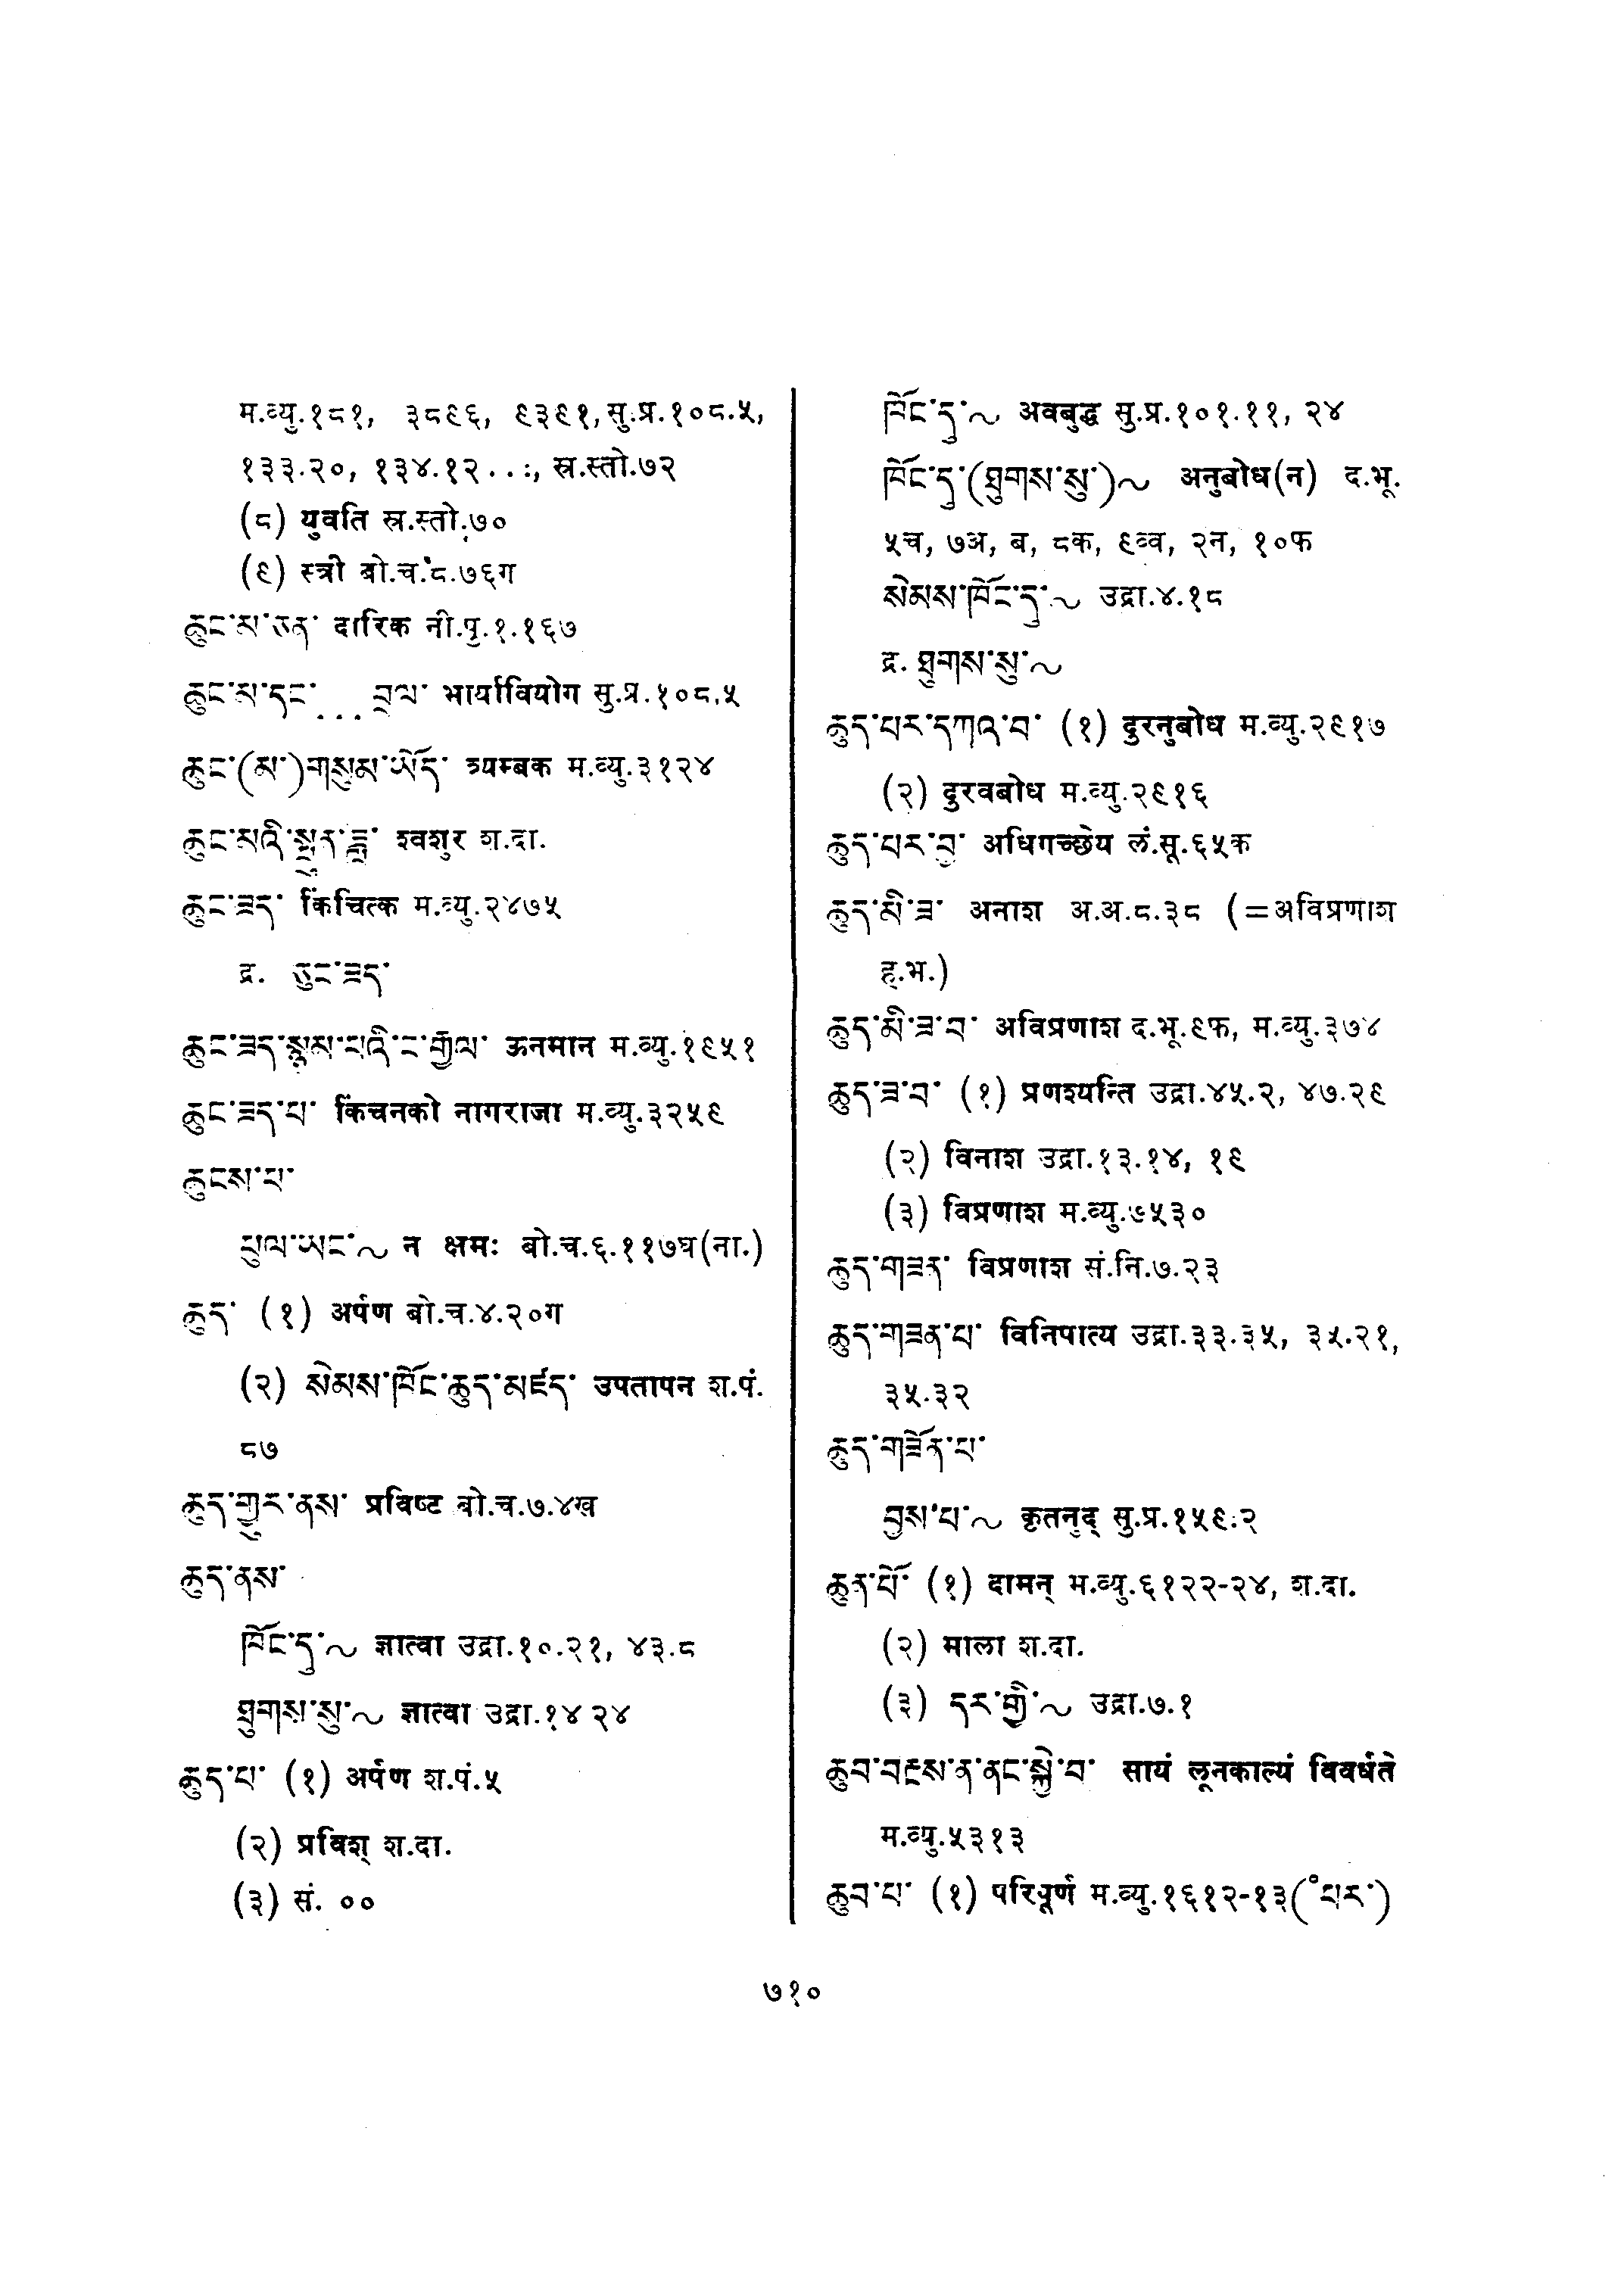 म.व्यु.१८१, ३८९६, ९३९१, सु.प्र.१०८.५,
१३३.२०, १३४.१२..:, स्र.स्तो.७२
(८) युवति स्र.स्तो.७०
(९) स्त्री बो.च.८.७६ग
ཆུང་མ་ཅན་ दारिक नी.पृ.१.१६७
ཆུང་མ་དང་...བྲལ་ भार्यावियोग सु.प्र.१०८.५
ཆུང་(མ་)གསུམ་ཡོད་ त्र्यम्बक म.व्यु.३१२४
ཆུང་མའི་སྤུན་ཟླ་ श्वशुर श.दा.
ཆུང་ཟད་ किंचित्क म.व्यु.२४७५
द्र. ཅུང་ཟད་
ཆུང་ཟད་སྙམ་པའི་ང་རྒྱལ་ ऊनमान म.व्यु.१९५१
ཆུང་ཟད་པ་ किंचनको नागराजा म.व्यु.३२५९
ཆུངས་པ་
ཕུལ་ཡང་~ न क्षमः बो.च.६.११७घ(ना.)
ཆུད་ (१) अर्पण बो.च.४.२०ग
(२) སེམས་ཁོང་ཆུད་མཛད་ उपतापन श.पं.
८७
ཆུད་གྱུར་ནས་ प्रविष्ट बो.च.७.४ख
ཆུད་ནས་
ཁོང་དུ་~ ज्ञात्वा उद्रा.१०.२१, ४३.८
ཐུགས་སུ་~ ज्ञात्वा उद्रा.१४ २४
ཆུད་པ་ (१) अर्पण श.पं.५
(२) प्रविश् श.दा.
(३) सं. ००
ཁོང་དུ་~ अवबुद्ध सु.प्र.१०१.११, २४
ཁོང་དུ་(ཐུགས་སུ་)~ अनुबोध(न) द.भू.
५च, ७अ, ब, ८क, ९व्व, २न, १०फ
སེམས་ཁོང་དུ་~ उद्रा.४.१८
द्र. ཐུགས་སུ་~
ཆུད་པར་དཀའ་བ་ (१) दुरनुबोध म.व्यु.२९१७
(२) दुरवबोध म.व्यु.२९१६
ཆུད་པར་བྱ་ अधिगच्छेय लं.सू.६५क
ཆུད་མི་ཟ་ अनाश अ.अ.८.३८ (=अविप्रणाश
ह.भ.)
ཆུད་མི་ཟ་བ་ अविप्रणाश द.भू.९फ, म.व्यु.३७४
ཆུད་ཟ་བ་ (१) प्रणश्यन्ति उद्रा.४५.२, ४७.२९
(२) विनाश उद्रा.१३.१४, १९
(३) विप्रणाश म.व्यु.७५३०
ཆུད་གཟན་ विप्रणाश सं.नि.७.२३
ཆུད་གཟན་པ་ विनिपात्य उद्रा.३३.३५, ३५.२१,
३५.३२
ཆུད་གཟོན་པ་
བྱས་པ་~ कृतनुद् सु.प्र.१५९.२
ཆུན་པོ་ (१) दामन् म.व्यु.६१२२-२४, श.दा.
(२) माला श.दा.
(३) དར་གྱི་~ उद्रा.७.१
ཆུབ་བརྔས་ན་ནང་སྐྱེ་བ་ सायं लूनकाल्यं विवर्धते
म.व्यु.५३१३
ཆུབ་པ་ (१) परिपूर्ण म.व्यु.१६१२-१३(°པར་)
७१०